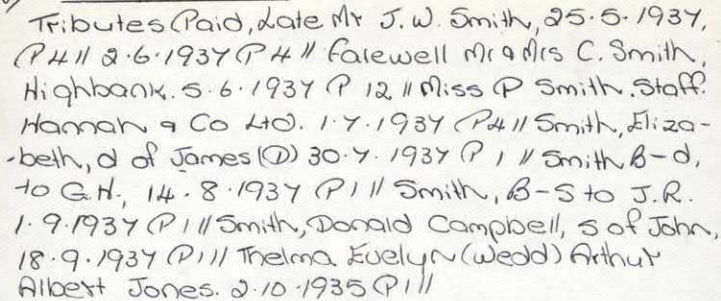 Tributes Paid, Late Mr J.W. Smith, 25.5.1937,
P4 // 2.6.1937 P4 // Farewell Mr & Mrs C. Smith,
Highbank. 5.6.1937 P 12 // Miss P Smith. Staff.
Hannah & Co Ltd. 1.7.1937 P4 // Smith, Eliza-
-beth, d of James (D) 30.7.1937 P 1 // Smith B-d,
to G.H., 14.8.1937 P1 // Smith, B-S to J.R.
1.9.1937 P1 // Smith, Donald Campbell, s of John,
18.9.1937 P1 // Thelma Evelyn (Wedd) Arthur
Albert Jones. 2.10.1935 P1 //